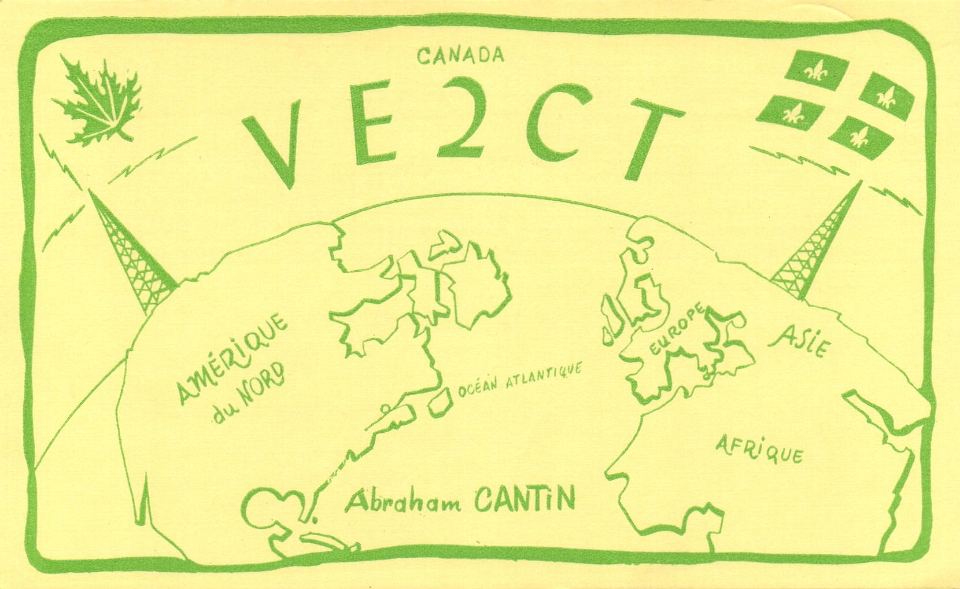 CANADA
VE2CT
AMÉRIQUE
du NORD
OCÉAN ATLANTIQUE
EUROPE
ASiE
AFRiQUE
Abraham CANTiN